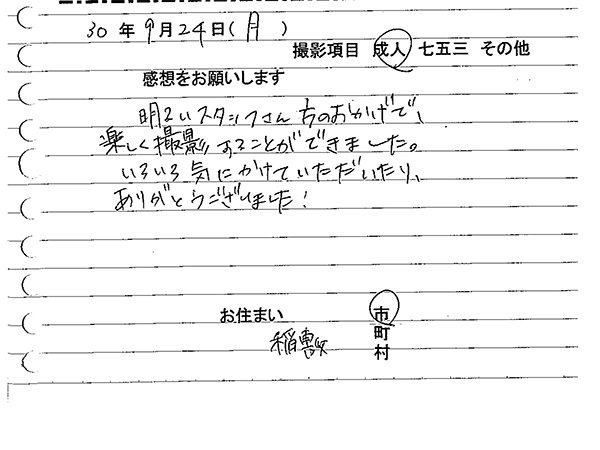 30年9月24日(月)
撮影項目 成人 七五三 その他
感想をお願いします
明るいスタッフさん方のおかげで、
楽しく撮影することができました。
いろいろ気にかけていただいたり、
ありがとうございました!
お住まい 市
町
稲敷 村